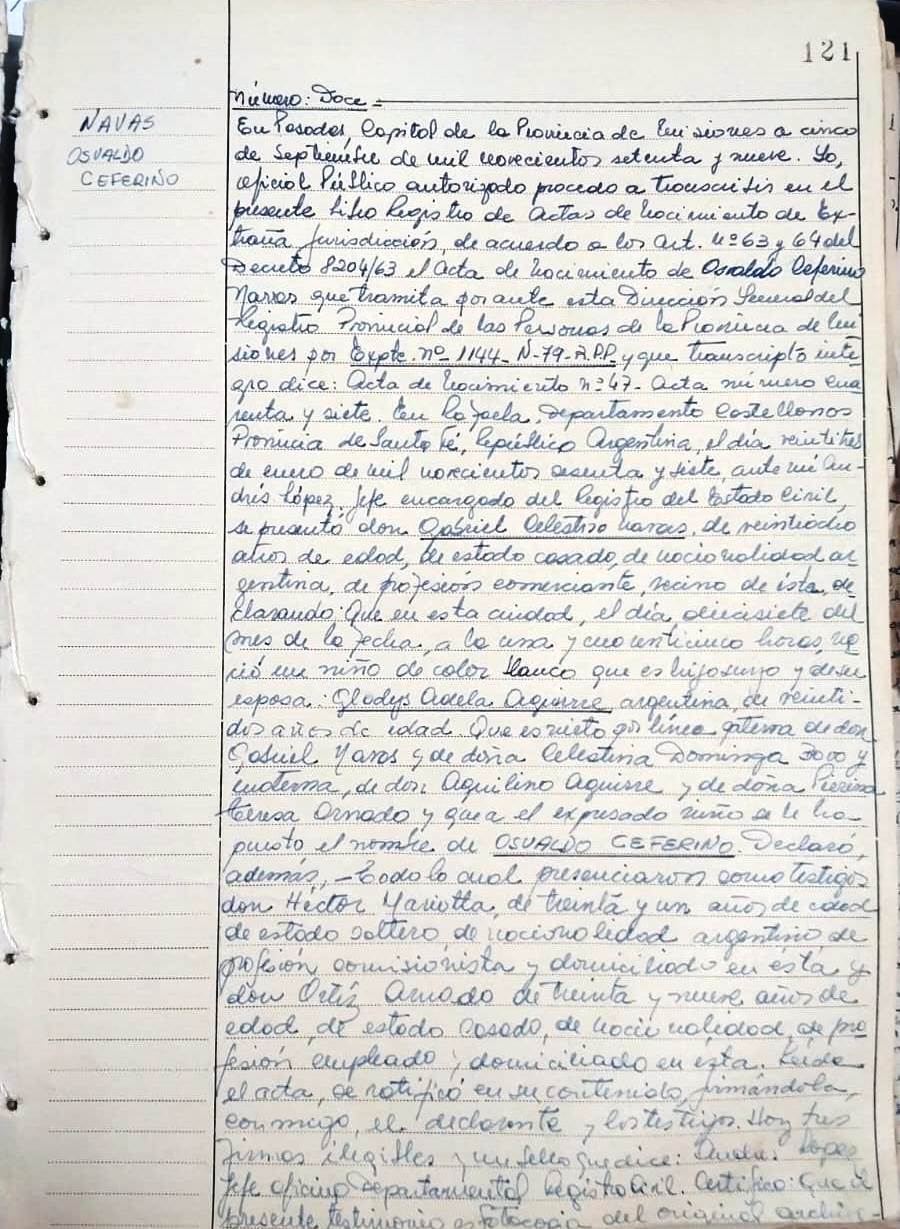 121
NAVAS
OSVALDO
CEFERINO
Número: Doce =
En Posadas, Capital de la Provincia de Misiones a cinco
de Septiembre de mil novecientos setenta y nueve. Yo,
oficial Público autorizado procedo a transcribir en el
presente Libro Registro de Actas de Nacimiento de Ex-
traña Jurisdicción, de acuerdo a los Art. Nº 63 y 64 del
Decreto 8204/63 el Acta de Nacimiento de Osvaldo Ceferino
Navas que tramita por ante esta Dirección General del
Registro Provincial de las Personas de la Provincia de Mi
siones por Expte. nº 1144- N-79-R.P.P. y que transcripto ínte
gro dice: Acta de Nacimiento nº 47- Acta número cua
renta y siete. En Rafaela, Departamento Castellanos
Provincia de Santa Fé, República Argentina, el día veintitres
de enero de mil novecientos sesenta y siete, ante mí An-
drés López, Jefe encargado del Registro del Estado Civil,
se presentó don Gabriel Celestino Navas, de veintiocho
años de edad, de estado casado, de nacionalidad ar
gentina, de profesión comerciante, vecino de ésta, de
clarando: Que en esta ciudad, el día, diecisiete del
mes de la fecha, a la una y cuarenticinco horas, na
ció un niño de color blanco que es hijo suyo y de su
esposa: Gladys Adela Aguirre argentina, de veinti-
dos años de edad. Que es nieto por línea paterna de don
Gabriel Navas y de doña Celestina Dominga y
materna, de don Aquilino Aguirre y de doña Pierina
Teresa Arnado y que a el expresado niño se le ha
puesto el nombre de OSVALDO CEFERINO. Declaró,
además, - Todo lo cual presenciaron como testigos
don Héctor Mariotta, de treinta y un años de edad
de estado soltero, de nacionalidad argentino, de
profesión comisionista y domiciliado en ésta y
don Ortíz Amado de treinta y nueve años de
edad, de estado casado, de nacionalidad, de pro
fesión empleado, domiciliado en ésta. Leída
el acta, se ratificó en su contenido, firmándola,
conmigo, el declarante y los testigos. Hay tres
firmas ilegibles y un sello que dice: López
Jefe oficina Departamental Registro Civil. Certifico: Que el
presente testimonio es fotocopia del original archiv-